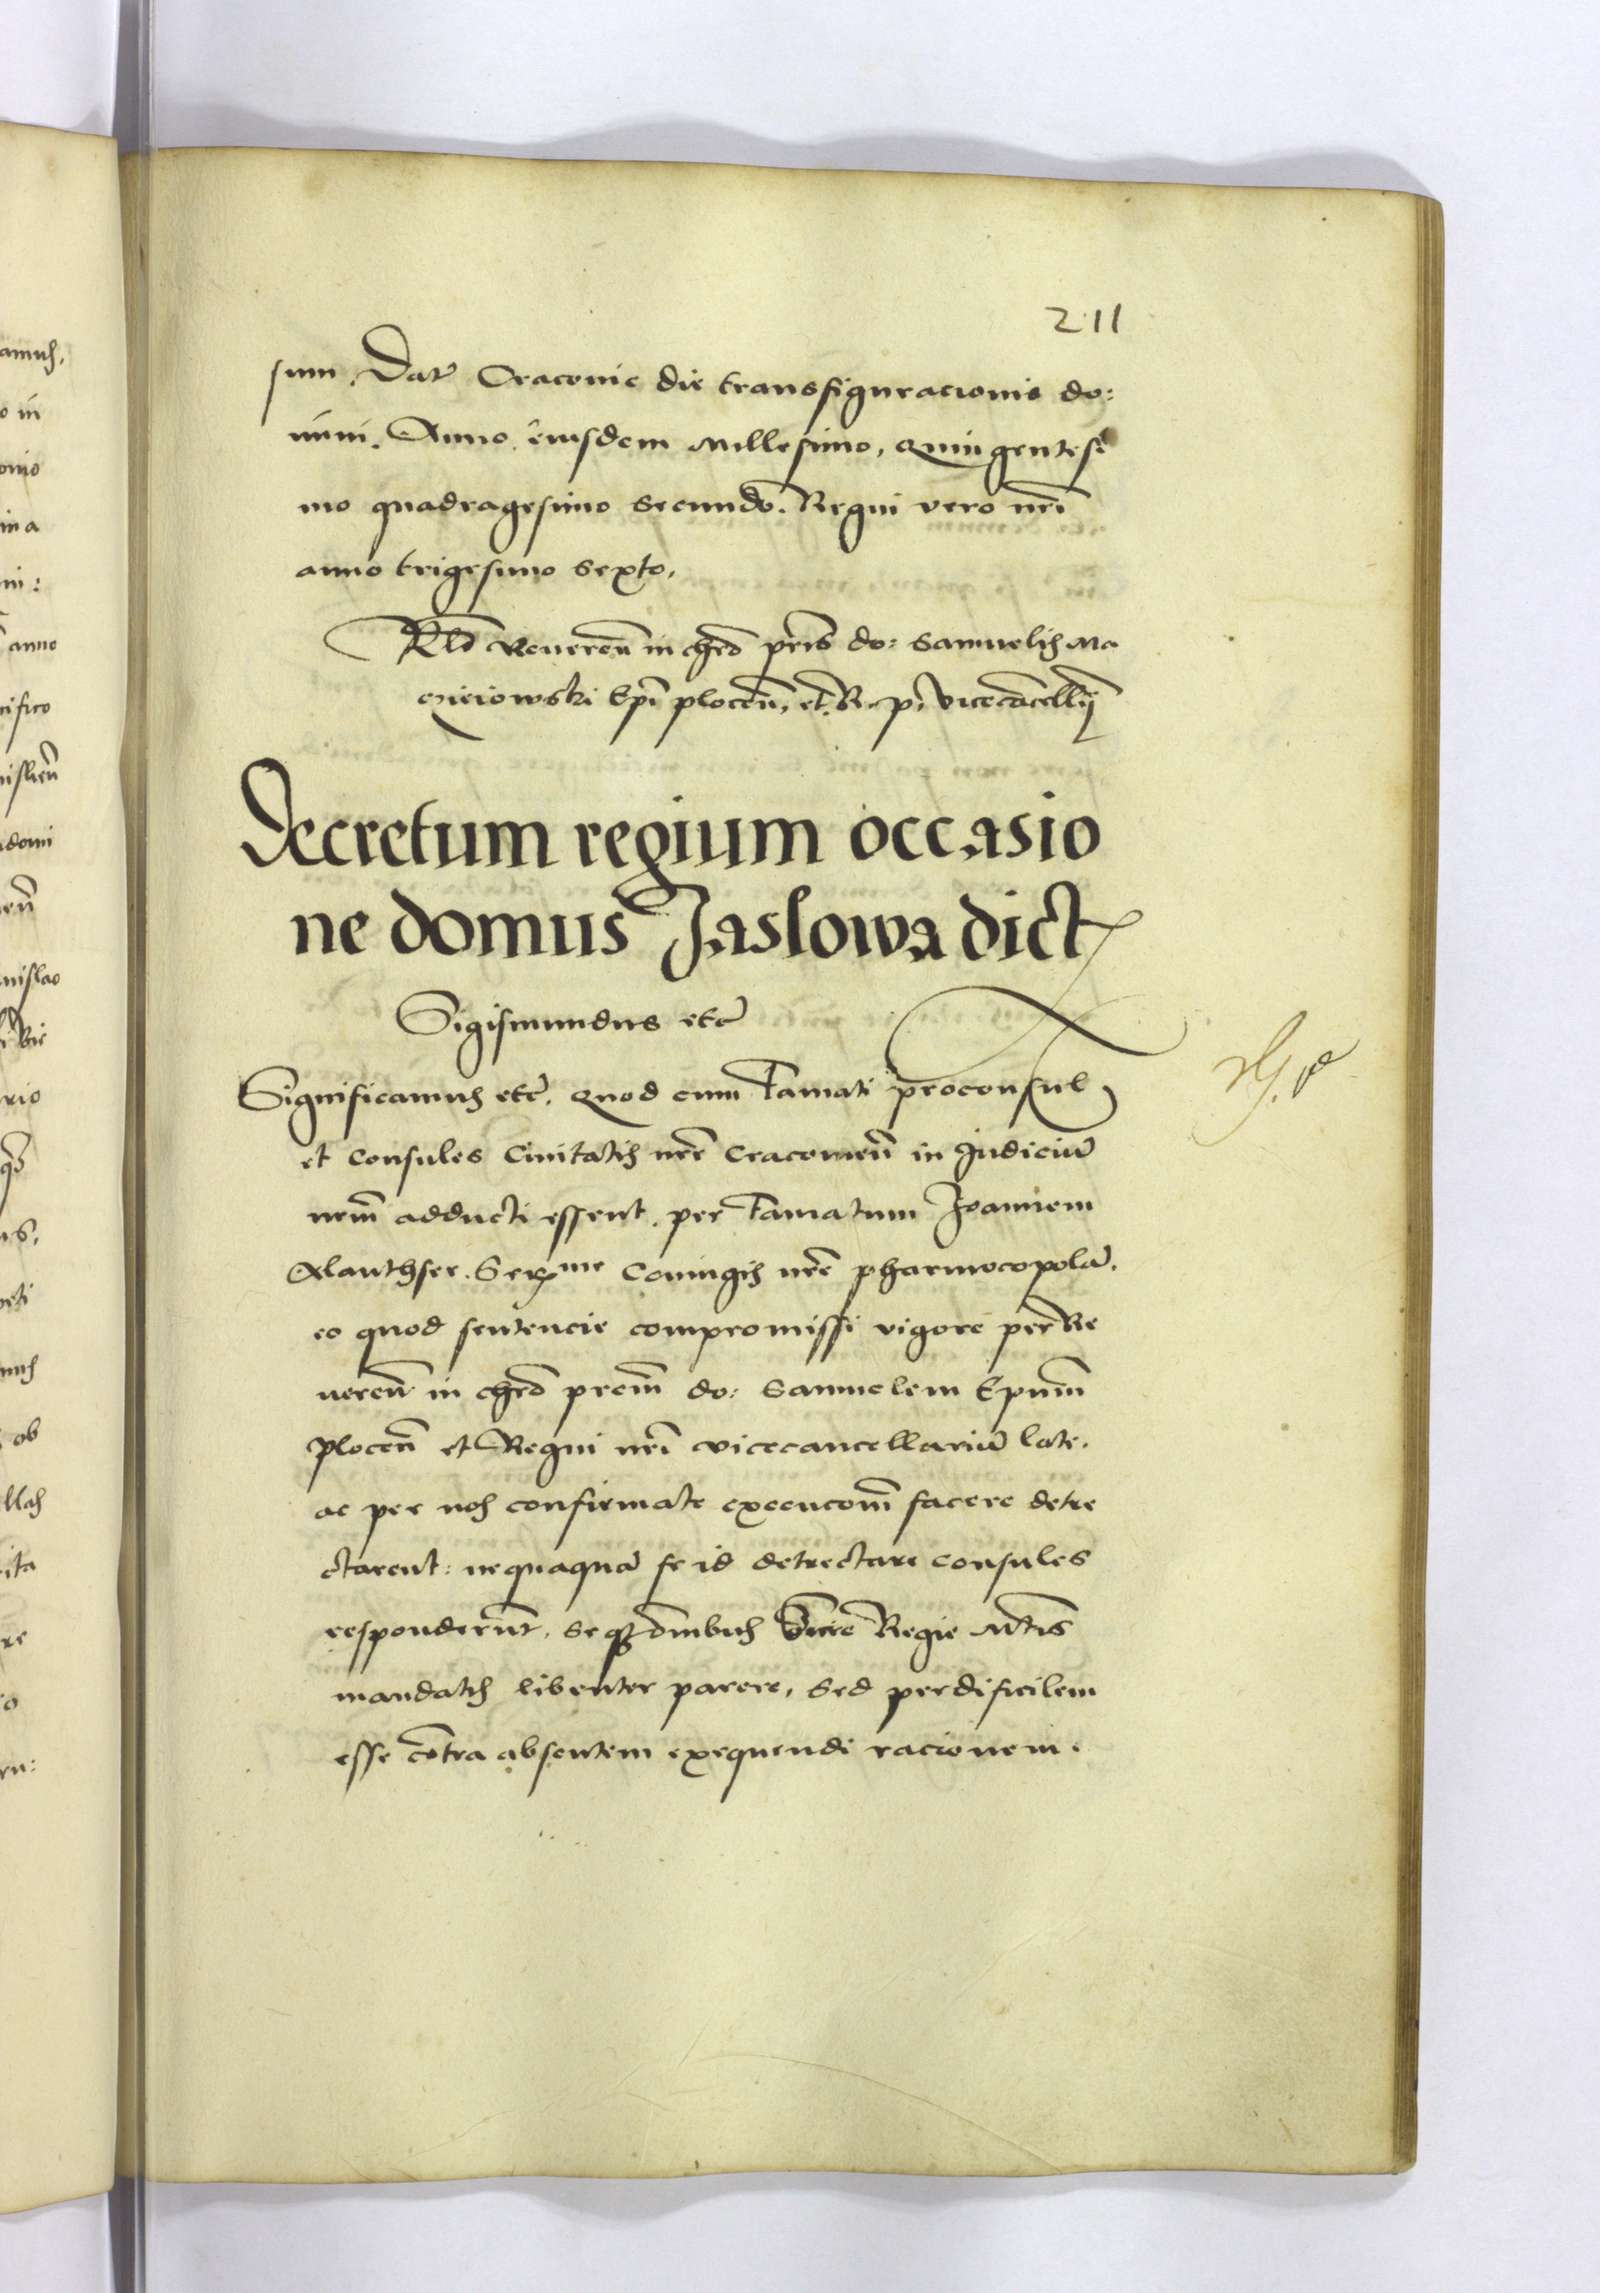 211
sum. Dat̃ Cracovie die transfiguracionis do:
mini. Anno eiusdem millesimo, quingentesi
mo quadragesimo secundo. Regni vero nr̃i
anno trigesimo sexto.
Rl̃o Reueren̄ in chr̃o pr̃is do: Samuelis Ma
czieiowski Ep̃i plocen̄, et R. p. vicecãcellȳ
Decretum regium occasio
ne domus Jaslowa dict
Sigismundus etc̃
Significamus etc̃. quod cum Famati proconsul
et consules Ciuitatis nr̃e Cracouien̄ in Judiciũ
nr̃m adducti essent. per Famatum Joannem
Alanthser. Ser^me Coniugis nr̃e pharmocopolã.
eo quod sentencie compromissi vigore per Re
ueren̄ in chr̃o pr̃em do: Samuelem Ep̃um
plocen̄ et Regni nr̃i vicecancellariũ late.
ac per nos confirmate execucom̃ facere detre
ctarent: nequaquã se id detrectare consules
responderũt. seq̃ om̃ibus Regie Mt̃is
mandatis libenter parere, Sed perdificilem
esse cõtra absentem exequendi racionem.